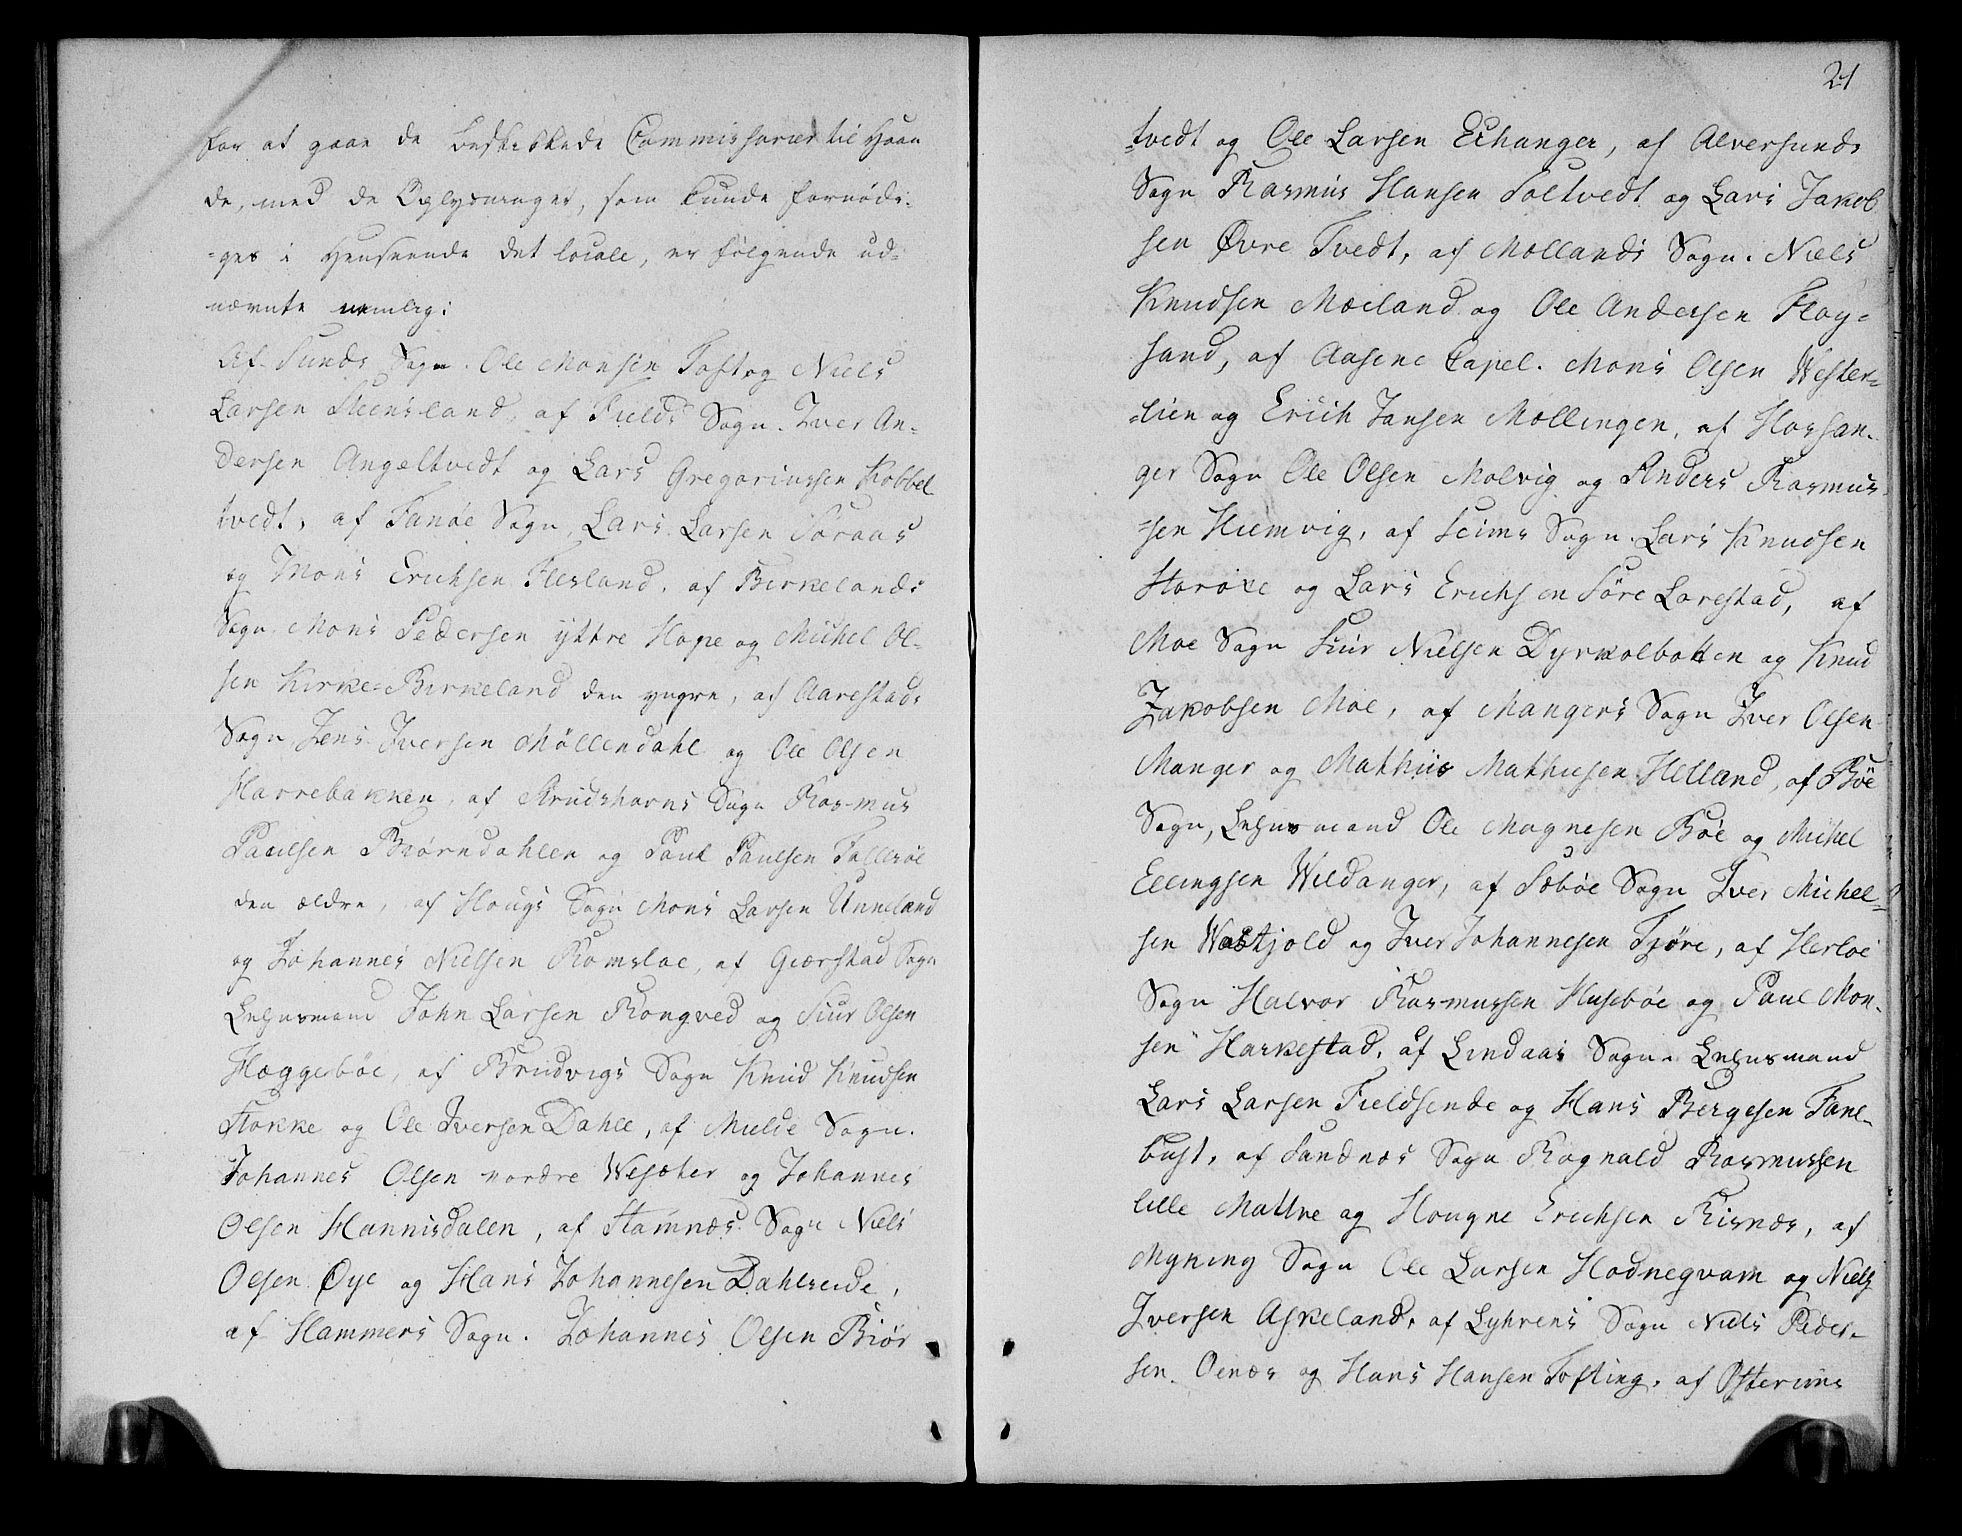 for at gaae de beskikkede Commissarier til Haan
de, med de Oplysninger, som kunde fornødi-
-ges i Henseende det locale, er følgende ud-
nævnte nemlig:
Af Sunds Sogn. Ole Monsen Toft og Niels
Larsen Steensland, af Fields Sogn. Iver An-
dersen Angeltvedt og Lars Gregoriussen Kobbel
tvedt, af Fanöe Sogn, Lars Larsen Söraas
og Mons Erichsen Flesland, af Berkelands
Sogn. Mons Pedersen yttre Hope og Michel Ol-
sen Kirke-Birkeland den yngre, af Aarestads
Sogn, Jens Iversen Möllendahl og Ole Olsen
Harrebakken, af Schudshorns Sogn Rasmus
Paulsen Biörndahlen og Paul Paulsen
den ældre, af Hougs Sogn Mons Larsen Unneland
og Johannes Nielsen Romsloe, af Giærstad Sogn
Lehnsmand John Larsen Rongved og Siur Olsen
Hæggeböe, af Brudvigs Sogn Knud Knudsen
Stokke og Ole Iversen Dahle, af Mielde Sogn.
Johannes Olsen nordre Wesæter og Johannes
Olsen Hannisdalen, af Stamnæs Sogn Niels
Olsen Øye og Hans Johannesen Dahlseide,
af Hammers Sogn. Johannes Olsen Biör
21
-tvedt og Ole Larsen Echanger, af Alversunds
Sogn Rasmus Hansen Toltvedt og Lars Jakob
sen Øvre Tvedt, af Mollands Sogn. Niels
Knudsen Mæland og Ole Andersen Floy-
sand, af Aasene Capel. Mons Olsen Wester-
-lien og Erich Jansen Mollingen, af Hosan-
ger Sogn Ole Olsen Molvig og Anders Rasmus
-sen Hiemvig, af Seims Sogn. Lars Knudsen
og Lars Erichsen Söre Lorestad, af
Moe Sogn Siur Nielsen Dyrkolbotten og Knud
Jakobsen Moe, af Mangers Sogn Iver Olsen
Manger og Mathias Mathiesen Helland, af Böe
Sogn, Lehnsmand Ole Magnesen Böe og Michel
Ellingsen Wildanger, af Sæböe Sogn Iver Michel-
sen Wastjold og Iver Johannesen Tjöre, af Herlöe
Sogn Halvor Rasmussen Huseböe og Paul Mon-
sen Harkestad, af Lindaas Sogn. Lehnsmand
Lars Larsen Fieldsende og Hans Bergesen Fane-
bust, af Sandnæs Sogn Rognald Rasmussen
lille Mattre og Hougne Erichsen Risnæs, af
Myking Sogn Ole Larsen Hodnegvam og Niels
Iversen Askeland, af Lyhrens Sogn Niels Peder-
sen Oenæs og Hans Hansen Tofting, af Østerims